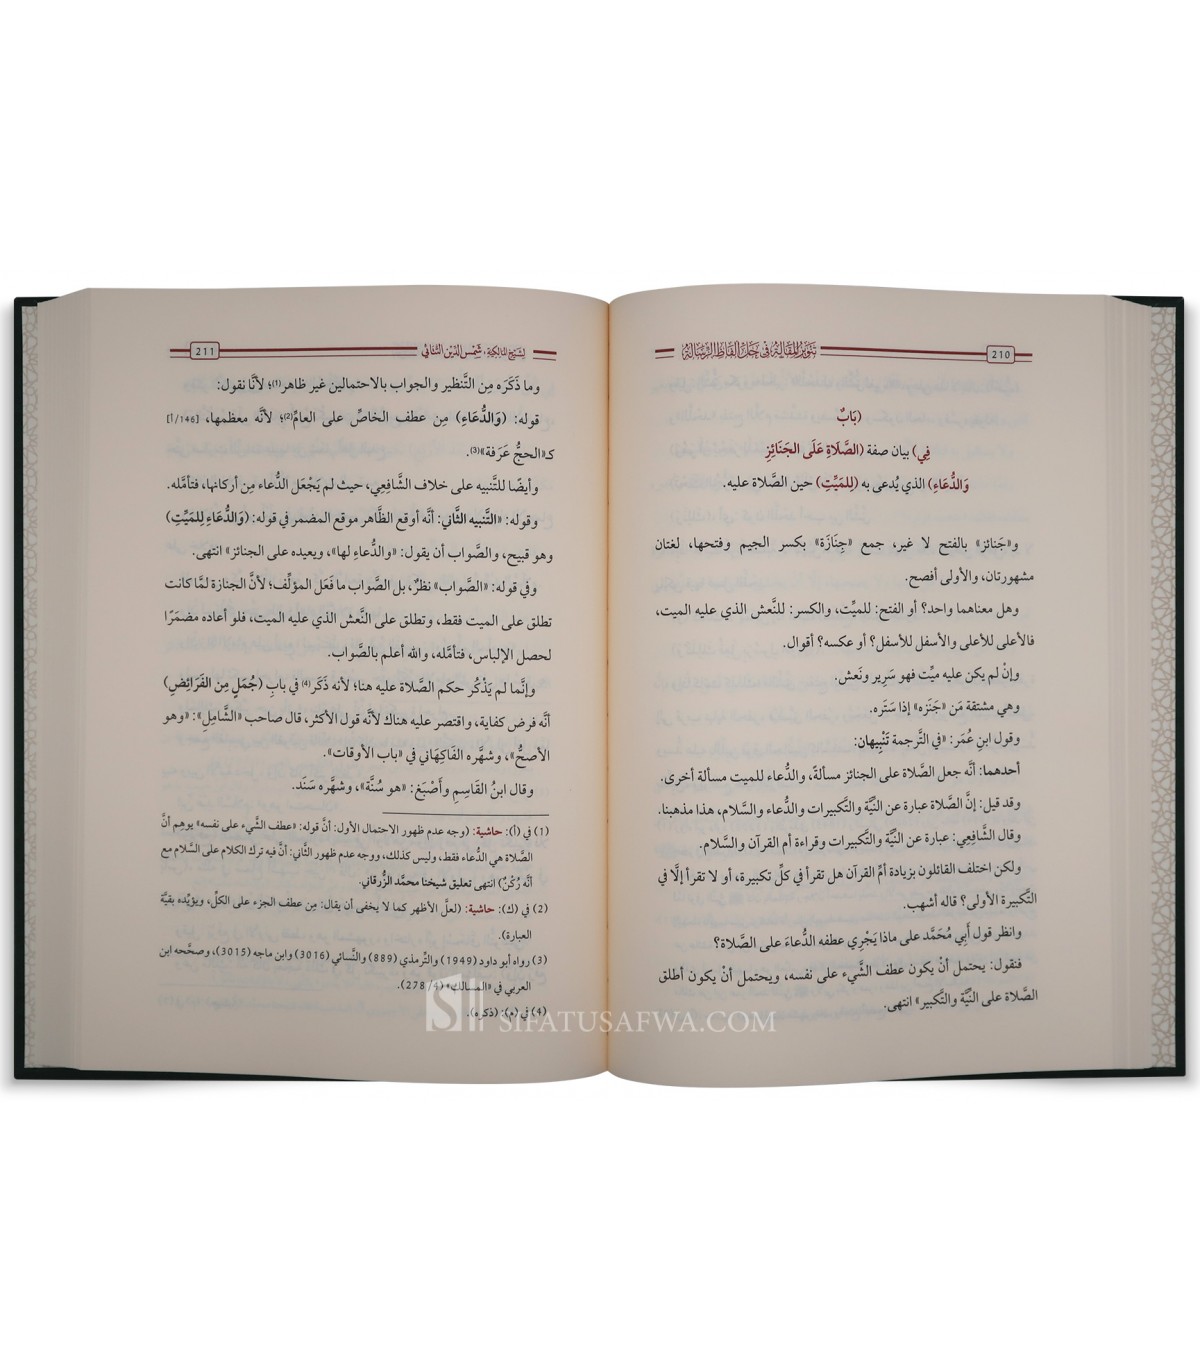 210
تنوير المقالة في حل ألفاظ الرسالة
(بَابٌ
فِي) بيان صفة (الصَّلَاةِ عَلَى الجَنَائِزِ
وَالدُّعَاءِ) الذي يُدعى به (لِلمَيِّتِ) حين الصَّلاة عليه.
و«جَنائز» بالفتح لا غير، جمع «جِنَازَة» بكسر الجيم وفتحها، لغتان
مشهورتان، والأولى أفصح.
وهل معناهما واحد؟ أو الفتح: للميِّت، والكسر: للنَّعش الذي عليه الميت،
فالأعلى للأعلى والأسفل للأسفل؟ أو عكسه؟ أقوال.
وإنْ لم يكن عليه ميِّت فهو سَرِير ونَعش.
وهي مشتقة مَن «جَنَزَه» إذا سَتَره.
وقول ابنِ عُمَر: «في التَّرجمة تَنْبِيهان:
أحدهما: أنَّه جعل الصَّلاة على الجنائز مسألةً، والدُّعاء للميت مسألة أخرى.
وقد قيل: إنَّ الصَّلاة عبارة عن النِّيَّة والتَّكبيرات والدُّعاء والسَّلام، هذا مذهبنا.
وقال الشَّافِعي: عبارة عن النِّيَّة والتَّكبيرات وقراءة أم القرآن والسَّلام.
ولكن اختلف القائلون بزيادة أمِّ القرآن هل تقرأ في كلِّ تكبيرة، أو لا تقرأ إلَّا في
التَّكبيرة الأولى؟ قاله أشهب.
وانظر قول أَبِي مُحَمَّد على ماذا يَجْرِي عطفه الدُّعاءَ على الصَّلاة؟
فنقول: يحتمل أنْ يكون عطف الشَّيء على نفسه، ويحتمل أنْ يكون أطلق
الصَّلاة على النِّيَّة والتَّكبير» انتهى.
لشيخ المالكية، شمس الدين التتائي
211
وما ذَكَرَه مِن التَّنظير والجواب بالاحتمالين غير ظاهر(1)؛ لأنَّا نقول:
قوله: (وَالدُّعَاءِ) مِن عطف الخاصِّ على العامِّ(2)؛ لأنَّه معظمها، [146/أ]
كـ«الحجُّ عَرَفة»(3).
وأيضًا للتَّنبيه على خلاف الشَّافِعِي، حيث لم يَجْعَل الدُّعاء مِن أركانها، فتأمَّله.
وقوله: «التَّنبيه الثَّاني: أنَّه أوقع الظَّاهر موقع المضمر في قوله: (وَالدُّعَاءِ لِلمَيِّتِ)
وهو قبيح، والصَّواب أن يقول: «والدُّعاءِ لها»، ويعيده على الجنائز» انتهى.
وفي قوله: «الصَّواب» نظرٌ، بل الصَّواب ما فَعَل المؤلِّف؛ لأنَّ الجنازة لمَّا كانت
تطلق على الميت فقط، وتطلق على النَّعش الذي عليه الميت، فلو أعاده مضمَرًا
لحصل الإلباس، فتأمَّله، والله أعلم بالصَّواب.
وإنَّما لم يَذْكُر حكم الصَّلاة عليه هنا؛ لأنه ذَكَر(4) في بابِ (جُمَلٍ مِن الفَرَائِضِ)
أنَّه فرض كفاية، واقتصر عليه هناك لأنَّه قول الأكثر، قال صاحب «الشَّامِلِ»: «وهو
الأصحُّ»، وشهَّره الفَاكِهَاني في «باب الأوقات».
وقال ابنُ القَاسِمِ وأَصْبَغ: «هو سُنَّة»، وشهَّره سَنَد.
(1) في (أ): حاشية: (وجه عدم ظهور الاحتمال الأول: أنَّ قوله: «عطف الشَّيء على نفسه» يوهم أنَّ
الصَّلاة هي الدُّعاء فقط، وليس كذلك، ووجه عدم ظهور الثَّاني: أنَّ فيه ترك الكلام على السَّلام مع
أنَّه رُكْنٌ) انتهى تعليق شيخنا محمَّد الزُّرقاني.
(2) في (ك): حاشية: (لعلَّ الأظهر كما لا يخفى أن يقال: مِن عطف الجزء على الكلّ، ويؤيِّده بقيَّة
العبارة).
(3) رواه أبو داود (1949) والتِّرمذي (889) والنَّسائي (3016) وابن ماجه (3015)، وصحَّحه ابن
العربي في «المسالك» (4/ 278).
(4) في (م): (ذكره).
SIFATUSAFWA.COM